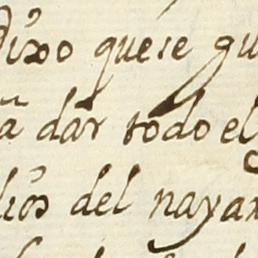 dixo que se gu
ã dar todo el
dios del nayar